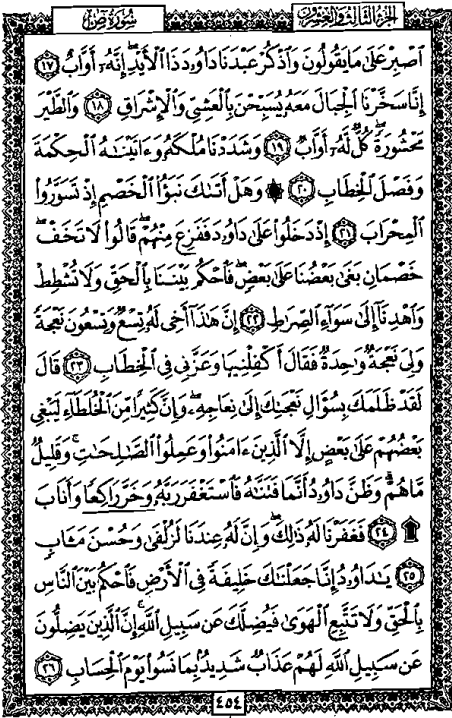 الجزء الثالث والعشرون
سورة ص
ٱصْبِرْ عَلَىٰ مَا يَقُولُونَ وَٱذْكُرْ عَبْدَنَا دَاوُۥدَ ذَا ٱلْأَيْدِ ۖ إِنَّهُۥٓ أَوَّابٌ ١٧
إِنَّا سَخَّرْنَا ٱلْجِبَالَ مَعَهُۥ يُسَبِّحْنَ بِٱلْعَشِىِّ وَٱلْإِشْرَاقِ ١٨ وَٱلطَّيْرَ
مَحْشُورَةً ۖ كُلٌّ لَّهُۥٓ أَوَّابٌ ١٩ وَشَدَدْنَا مُلْكَهُۥ وَءَاتَيْنَٰهُ ٱلْحِكْمَةَ
وَفَصْلَ ٱلْخِطَابِ ٢٠ ۞ وَهَلْ أَتَىٰكَ نَبَؤُا۟ ٱلْخَصْمِ إِذْ تَسَوَّرُوا۟
ٱلْمِحْرَابَ ٢١ إِذْ دَخَلُوا۟ عَلَىٰ دَاوُۥدَ فَفَزِعَ مِنْهُمْ ۖ قَالُوا۟ لَا تَخَفْ ۖ
خَصْمَانِ بَغَىٰ بَعْضُنَا عَلَىٰ بَعْضٍ فَٱحْكُم بَيْنَنَا بِٱلْحَقِّ وَلَا تُشْطِطْ
وَٱهْدِنَآ إِلَىٰ سَوَآءِ ٱلصِّرَٰطِ ٢٢ إِنَّ هَٰذَآ أَخِى لَهُۥ تِسْعٌ وَتِسْعُونَ نَعْجَةً
وَلِىَ نَعْجَةٌ وَٰحِدَةٌ فَقَالَ أَكْفِلْنِيهَا وَعَزَّنِى فِى ٱلْخِطَابِ ٢٣ قَالَ
لَقَدْ ظَلَمَكَ بِسُؤَالِ نَعْجَتِكَ إِلَىٰ نِعَاجِهِۦ ۖ وَإِنَّ كَثِيرًا مِّنَ ٱلْخُلَطَآءِ لَيَبْغِى
بَعْضُهُمْ عَلَىٰ بَعْضٍ إِلَّا ٱلَّذِينَ ءَامَنُوا۟ وَعَمِلُوا۟ ٱلصَّٰلِحَٰتِ وَقَلِيلٌ
مَّا هُمْ ۗ وَظَنَّ دَاوُۥدُ أَنَّمَا فَتَنَّٰهُ فَٱسْتَغْفَرَ رَبَّهُۥ وَخَرَّ رَاكِعًا وَأَنَابَ
۩ ٢٤ فَغَفَرْنَا لَهُۥ ذَٰلِكَ ۖ وَإِنَّ لَهُۥ عِندَنَا لَزُلْفَىٰ وَحُسْنَ مَـَٔابٍ
٢٥ يَٰدَاوُۥدُ إِنَّا جَعَلْنَٰكَ خَلِيفَةً فِى ٱلْأَرْضِ فَٱحْكُم بَيْنَ ٱلنَّاسِ
بِٱلْحَقِّ وَلَا تَتَّبِعِ ٱلْهَوَىٰ فَيُضِلَّكَ عَن سَبِيلِ ٱللَّهِ ۚ إِنَّ ٱلَّذِينَ يَضِلُّونَ
عَن سَبِيلِ ٱللَّهِ لَهُمْ عَذَابٌ شَدِيدٌۢ بِمَا نَسُوا۟ يَوْمَ ٱلْحِسَابِ ٢٦
٤٥٤